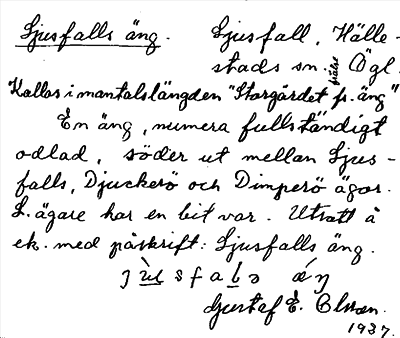 Ljusfalls äng. Ljusfall, Hälle-
stads sn. Ögl.
Kallas i mantalslängden "Storgärdet fr. äng"
frälse
En äng, numera fullständigt
odlad, söder ut mellan Ljus-
falls, Djuckerö och Dimperö ägor.
L. ägare har en bit var. Utsatt å
ek. med påskrift: Ljusfalls äng.
Gustaf E. Olsson.
1937.